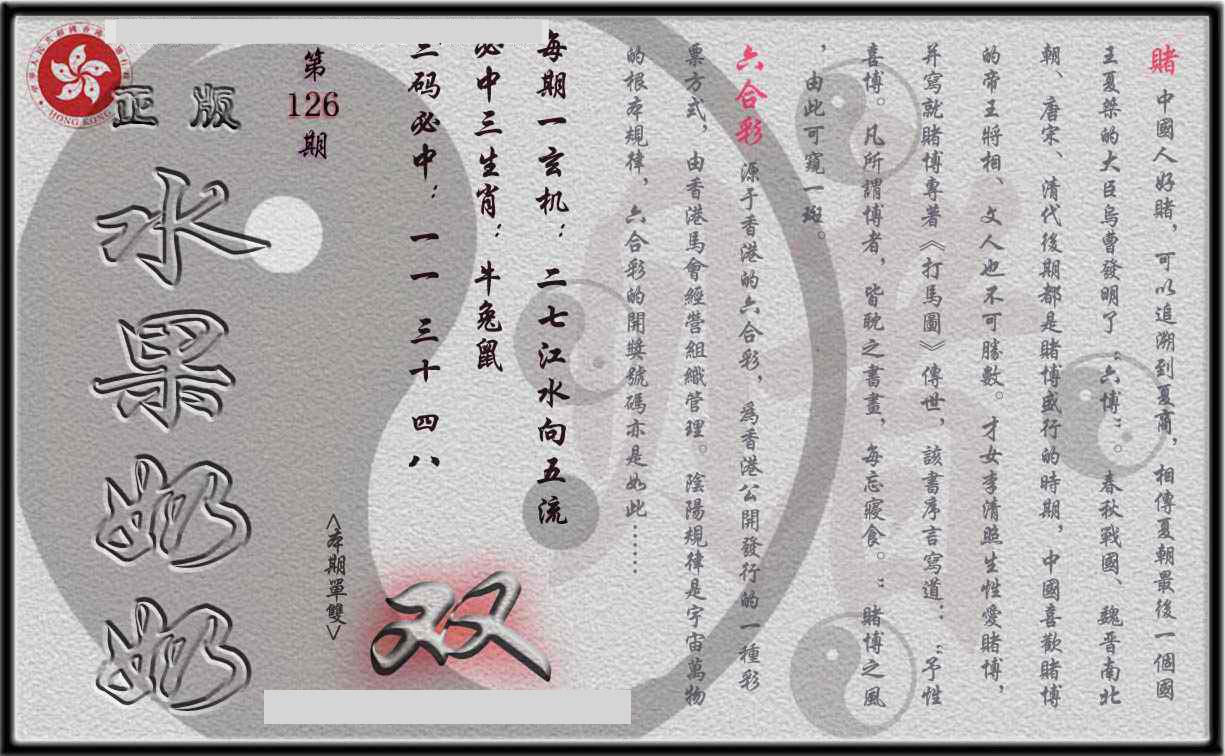 賭 中國人好賭，可以追溯到夏商，相傳夏朝最後一個國
王夏桀的大臣烏曹發明了“六博”。春秋戰國、魏晋南北
朝、唐宋、清代後期都是賭博盛行的時期，中國喜歡賭博
的帝王將相、文人也不可勝數。才女李清照生性愛賭博，
并寫就賭博專著《打馬圖》傳世，該書序言寫道：“予性
喜博。凡所謂博者，皆耽之書畫，每忘寢食。”賭博之風
，由此可窺一斑。
六合彩 源于香港的六合彩，爲香港公開發行的一種彩
票方式，由香港馬會經營組織管理。陰陽規律是宇宙萬物
的根本規律，六合彩的開獎號碼亦是如此……
每期一玄机：二七江水向五流
必中三生肖：牛兔鼠
三码必中：一一 三十 四八
第
126
期
正版
水果奶奶
<本期單雙>
双
HONG KONG